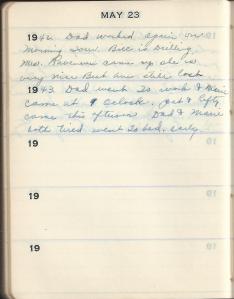 MAY 23
1942. Dad worked again on
morning tour. Bill is drilling
Mrs. came up she is
very nice But we still lost
1943. Dad went to work & Marie
came at 9 oclock. Jack & Lefty
came this afternoon Dad & Marie
both tired went to bed, early.
19
19
19